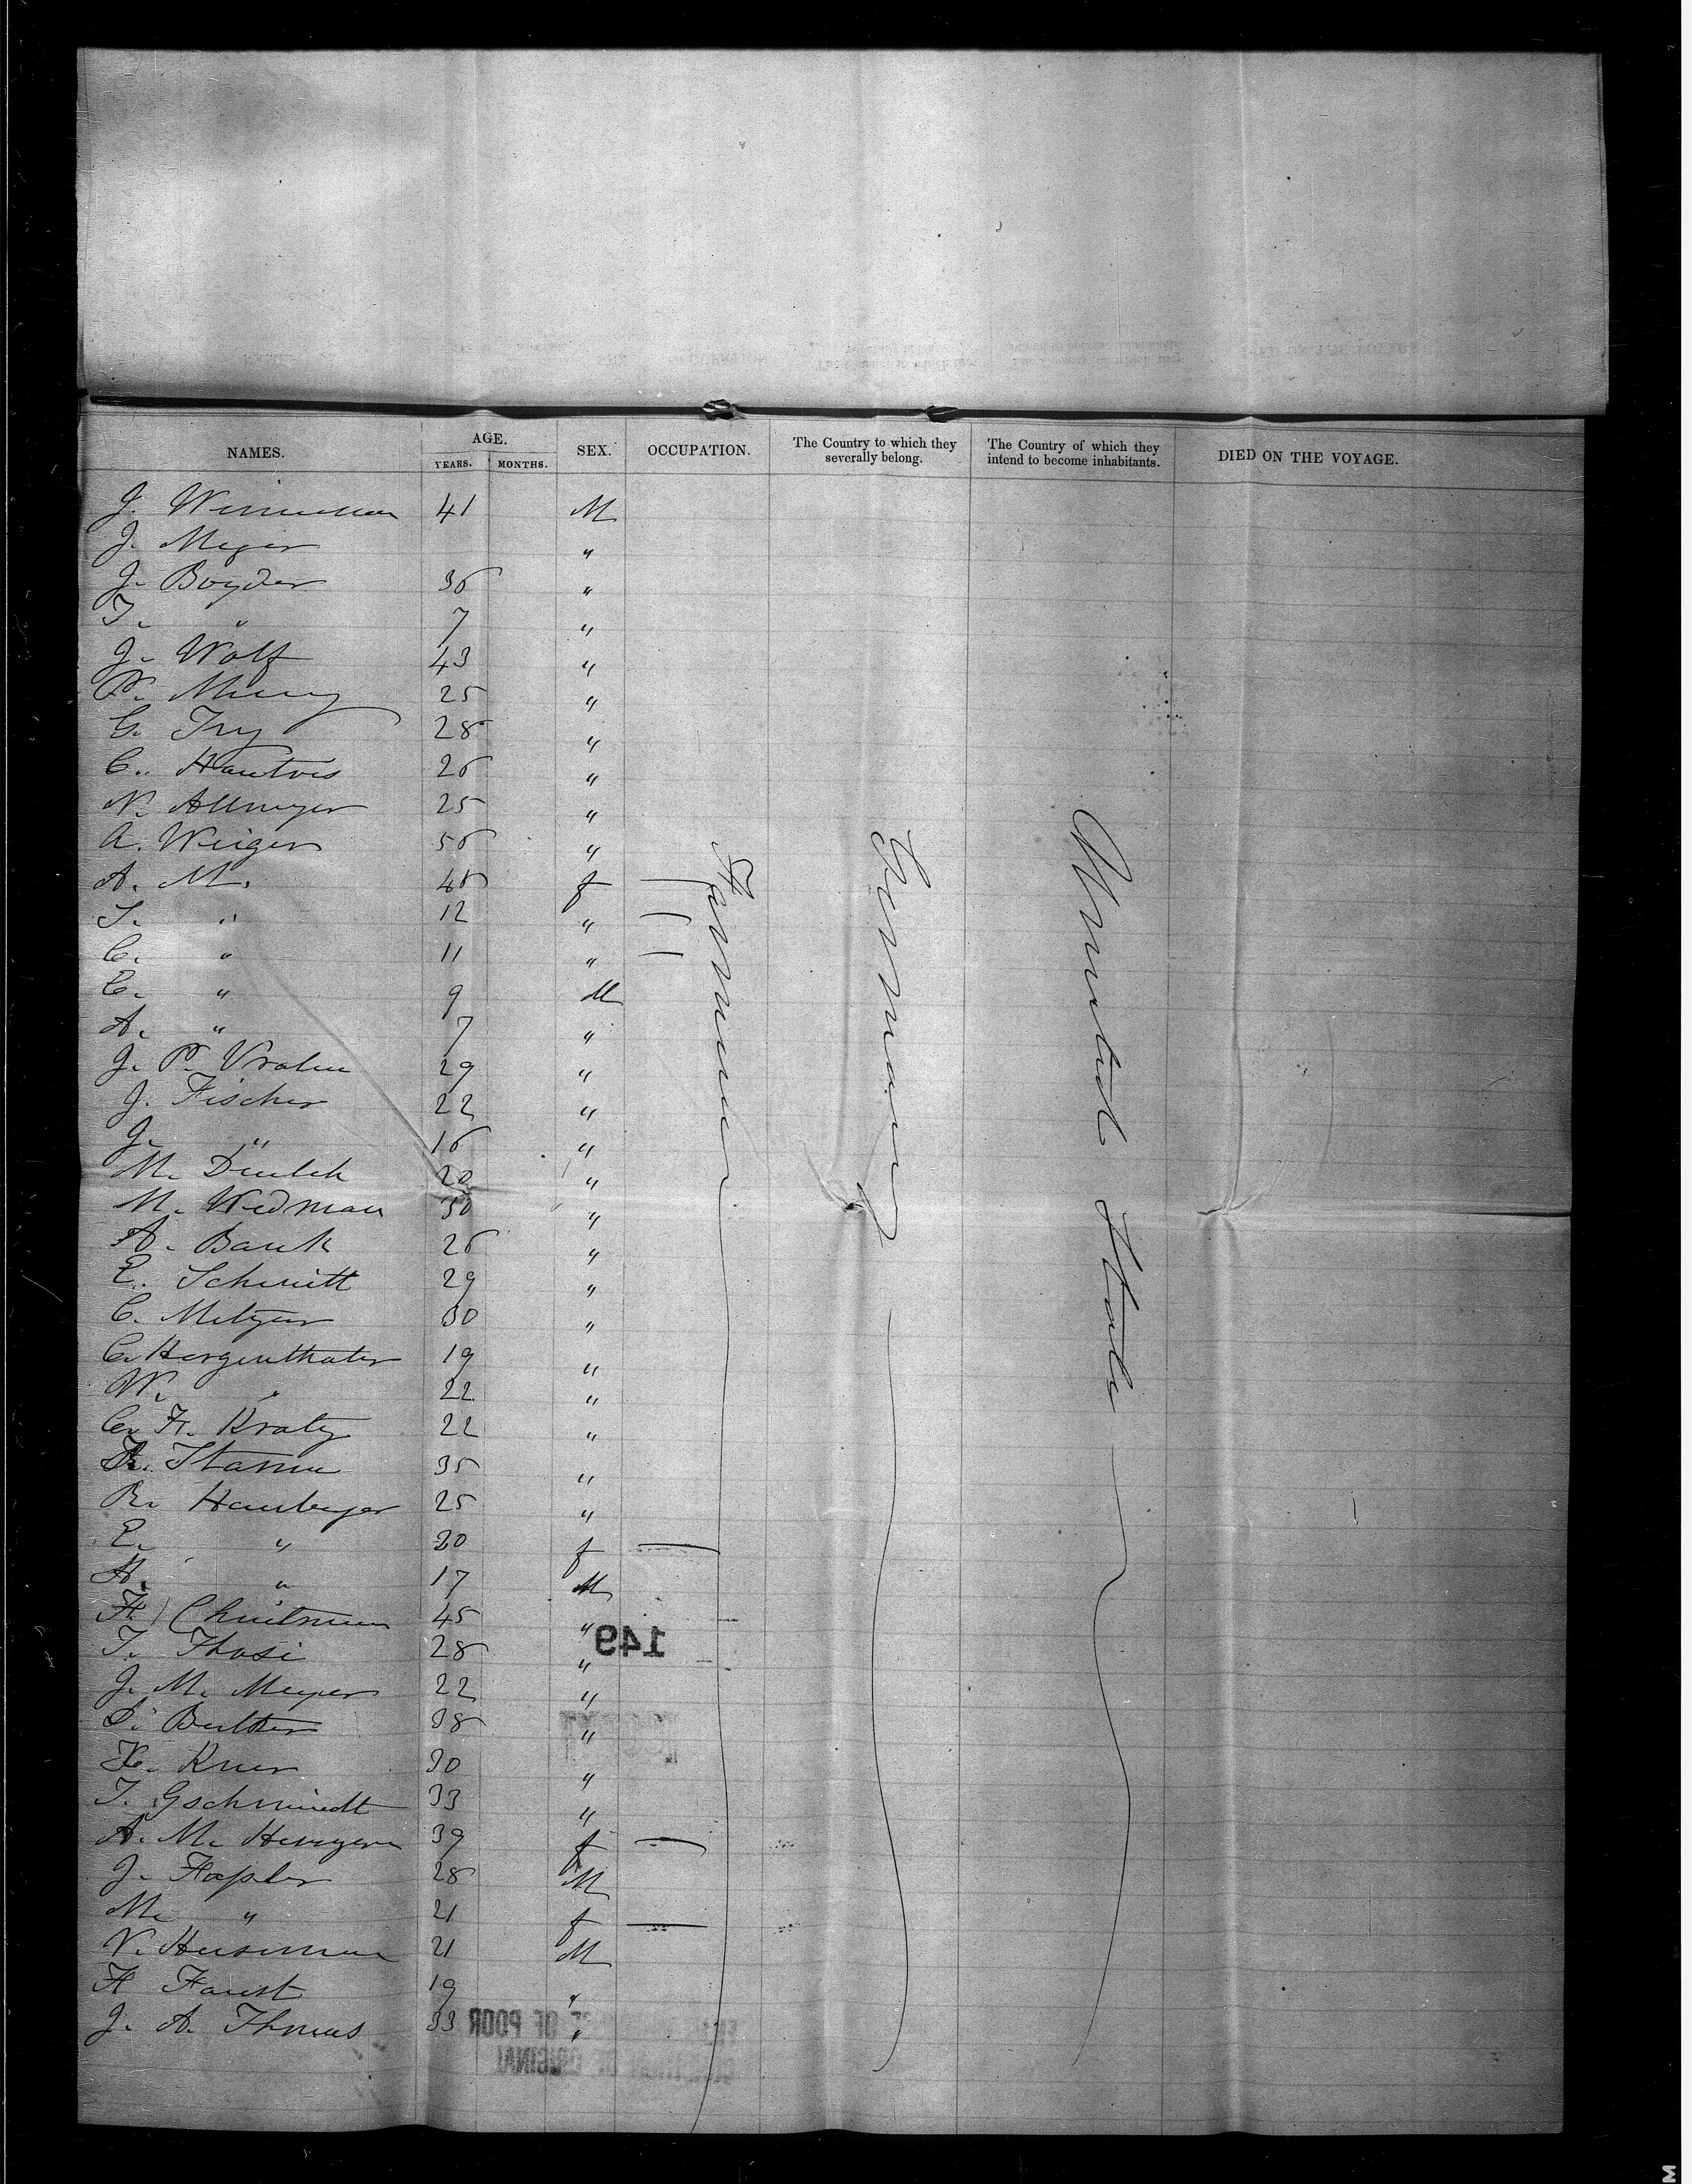 NAMES. AGE. YEARS. MONTHS. SEX. OCCUPATION. The Country to which they severally belong. The Country of which they intend to become inhabitants. DIED ON THE VOYAGE.
J. 41 M
J. Meyer "
J. Boyder 36 "
T. " 7 "
J. Wolf 43 "
P. 25 "
G. Fry 28 "
C. 26 "
N. Allmeyer 25 "
A. Weiger 56 "
A. M. 46 f —
S. " 12 " —
C. " 11 " —
E. " 9 M
A. " 7 "
J. P. 29 "
J. Fischer 22 "
J. " 16 "
M. 20 "
M. Wedman 30 "
A. Bank 26 "
E. Schmitt 29 "
C. Metzger 30 "
C. Hergenthater 19 "
W. " 22 "
C. F. Kratz 22 "
Stamm 35 "
R. Hamberger 25 "
E. " 20 f —
A. " 17 M
F. 45 "
T. Thosi 28 "
J. M. Meyer 22 "
38 "
Kner 30 "
T. Gschmiedt 33 "
A. M. 39 f —
J. Fapler 28 M
M. " 21 f —
N. 21 M
F Faust 19 "
J. A. Thomas 33 "
Farmer
Germany
United States
149
OF POOR
ORIGINAL